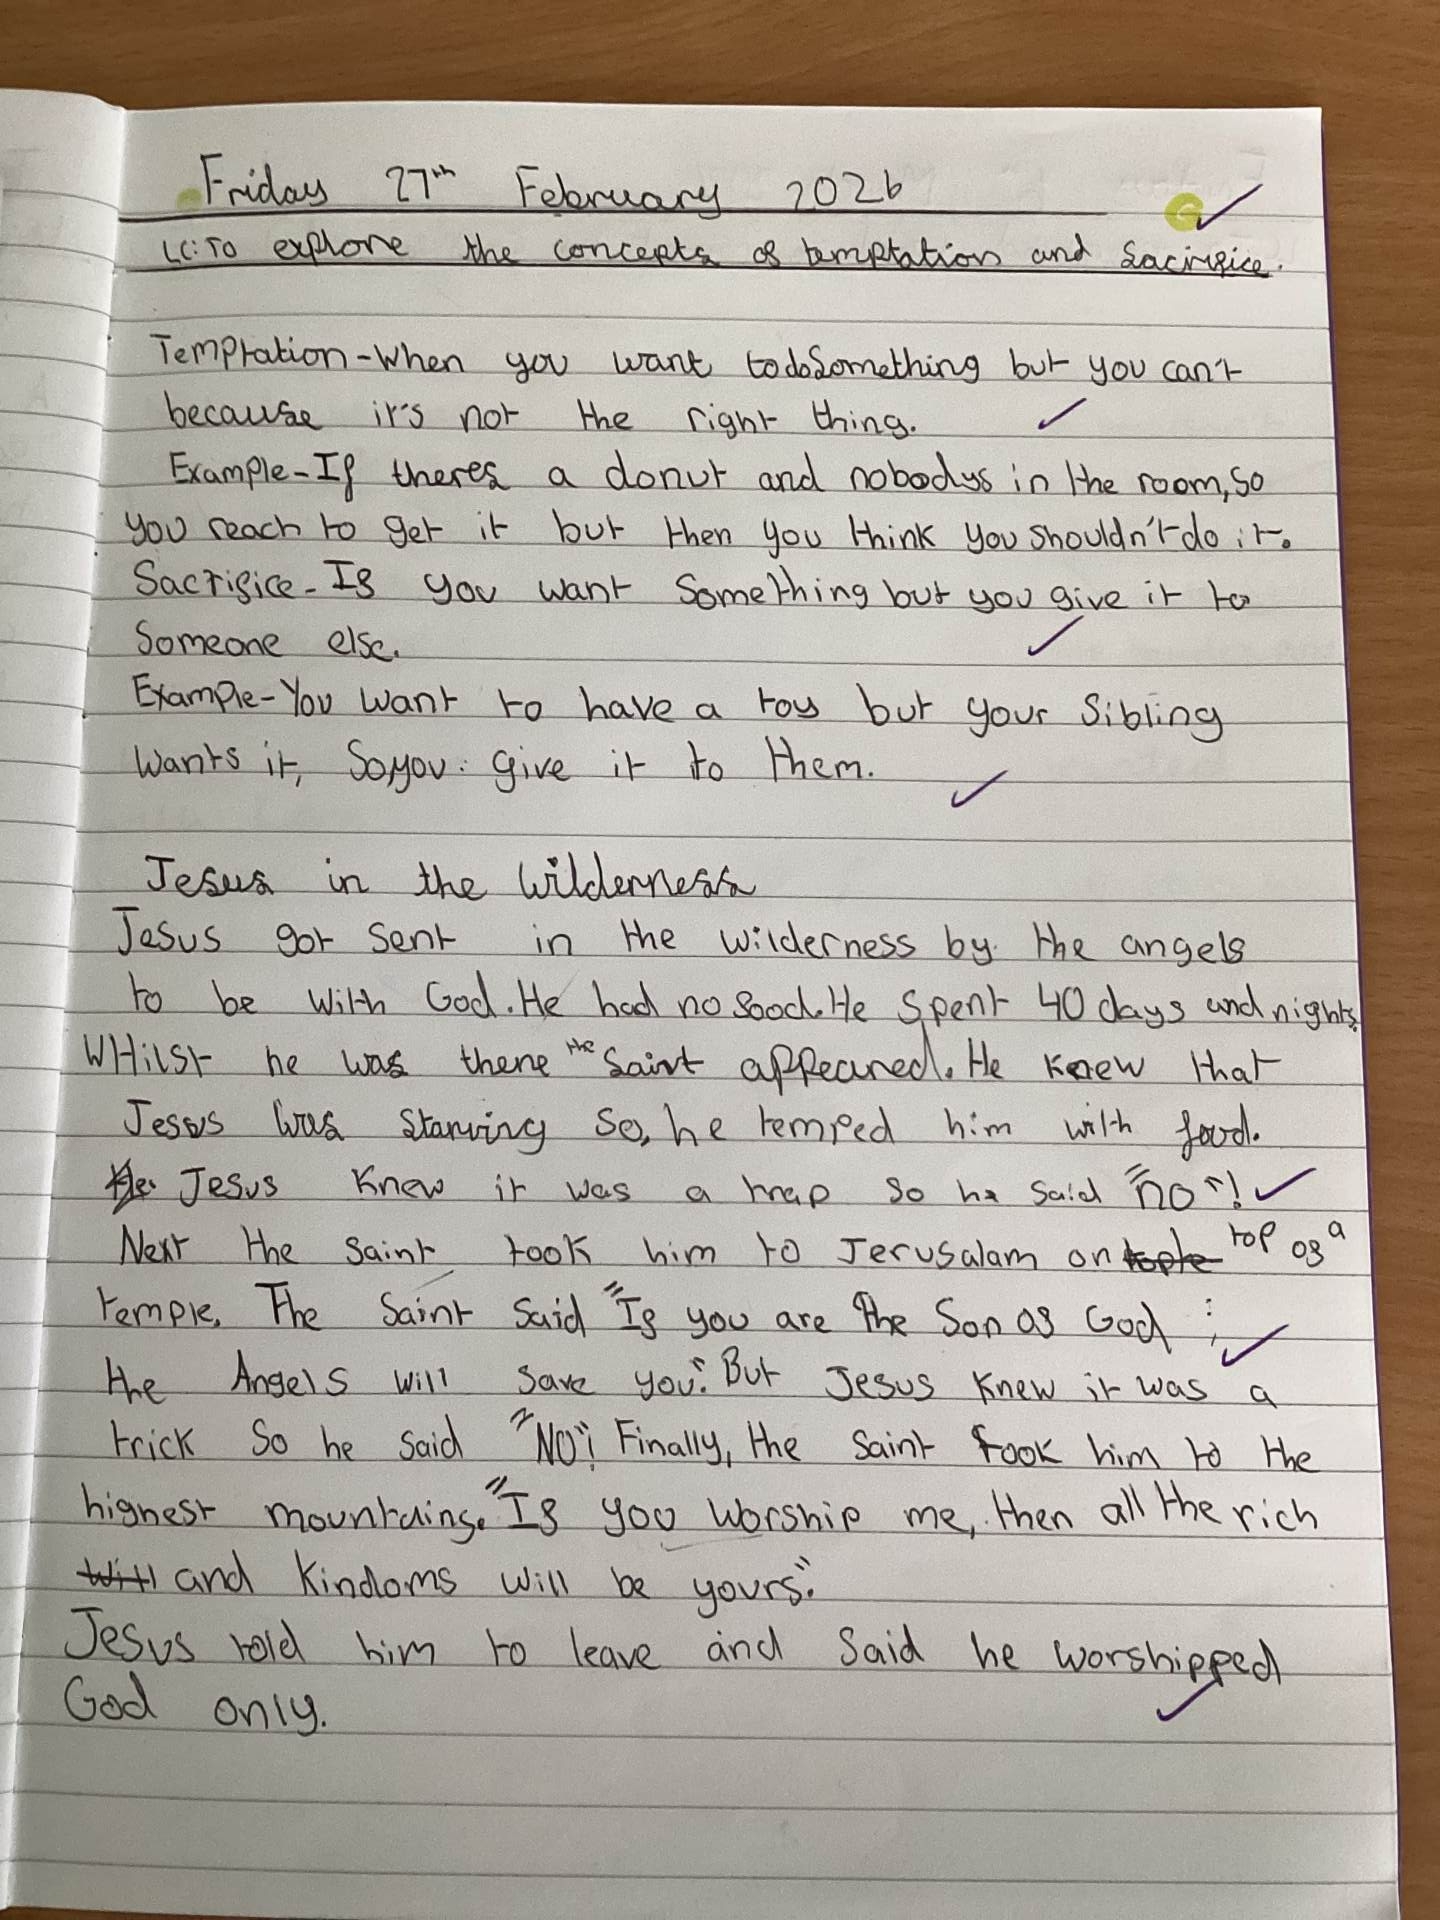 Friday 27th February 2026
LC: To explore the concepts of temptation and sacrifice.
Temptation - When you want to do something but you can't
because it's not the right thing.
Example - If theres a donut and nobodys in the room, so
you reach to get it but then you think you shouldn't do it.
Sacrifice - If you want something but you give it to
someone else.
Example - You want to have a toy but your sibling
wants it, so you give it to them.
Jesus in the wilderness
Jesus got sent in the wilderness by the angels
to be with God. He had no food. He spent 40 days and nights.
WHilst he was there the saint appeared. He knew that
Jesus was starving so, he temped him with food.
Jesus knew it was a trap so he said "no"!
Next the saint took him to Jerusalam on top of a
temple. The saint said "If you are the Son of God ;
the Angels will save you". But Jesus knew it was a
trick so he said "NO"! Finally, the saint took him to the
highest mountains. "If you worship me, then all the rich
and Kindoms will be yours".
Jesus told him to leave and said he worshipped
God only.